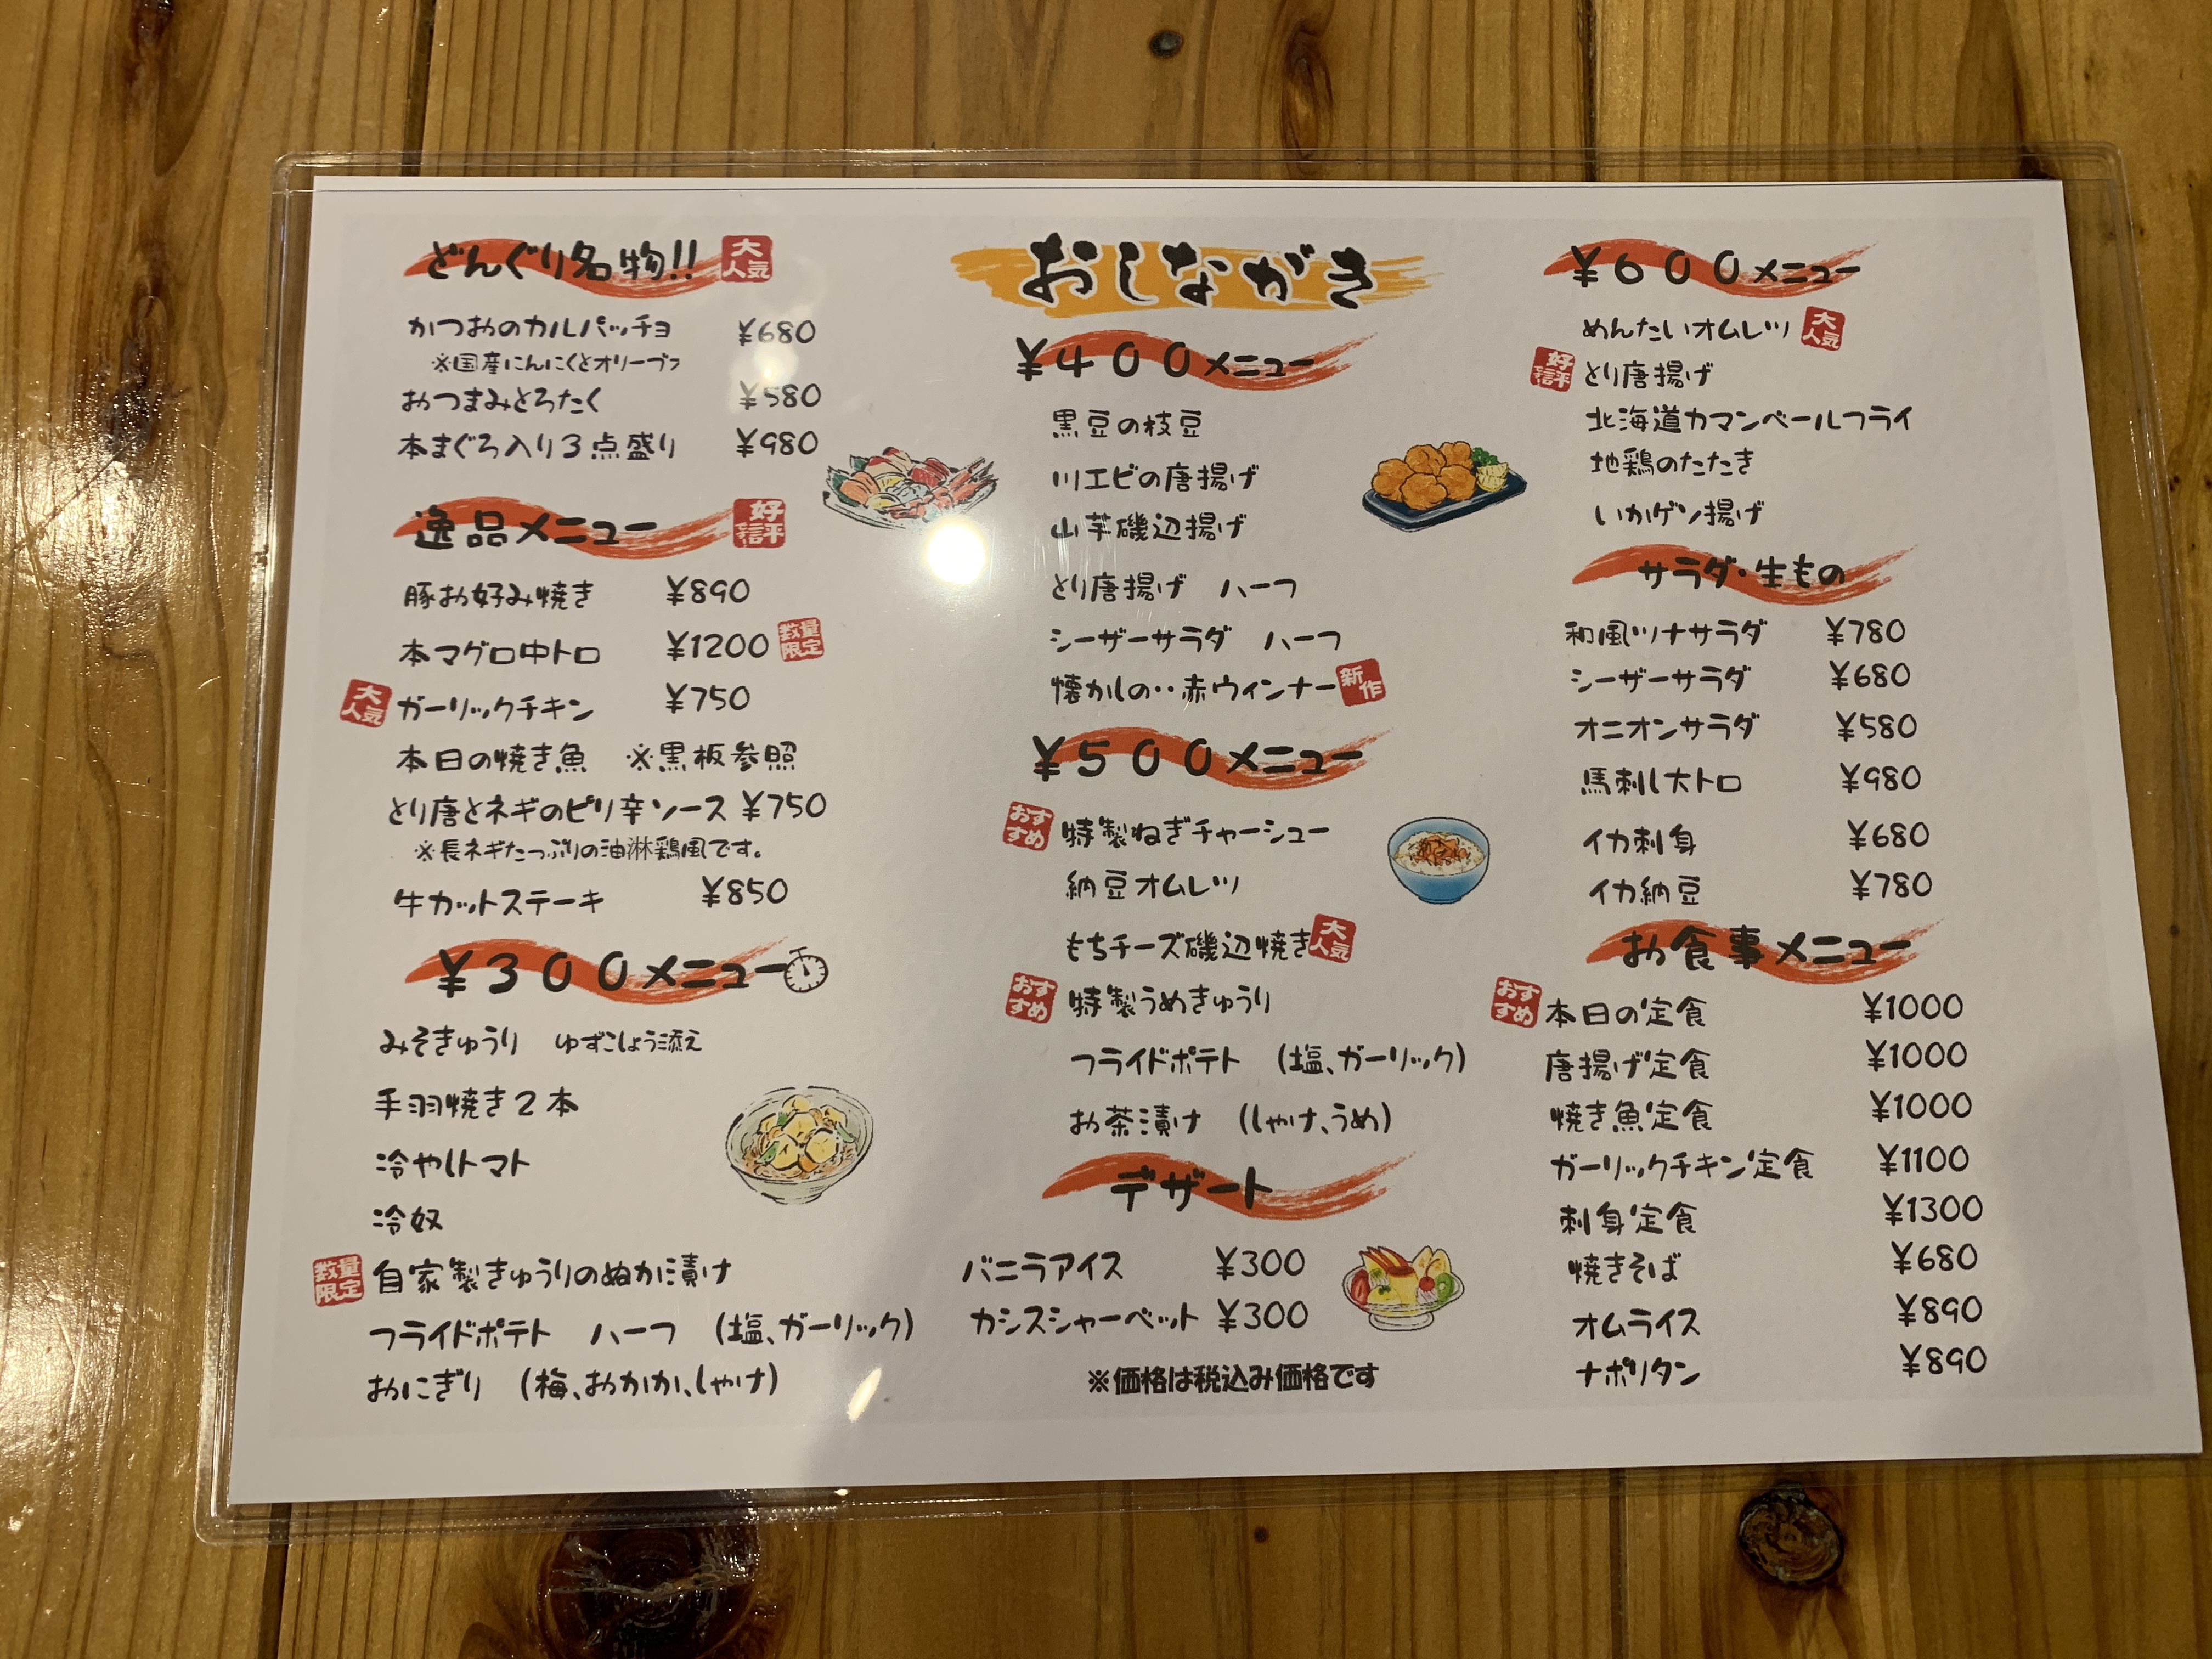 どんぐり名物!! 大人気
かつおのカルパッチョ ¥680
※国産にんにくとオリーブ
おつまみとろたく ¥580
本まぐろ入り3点盛り ¥980
逸品メニュー 好評
豚お好み焼き ¥890
本マグロ中トロ ¥1200 数量限定
大人気 ガーリックチキン ¥750
本日の焼き魚 ※黒板参照
とり唐とネギのピリ辛ソース ¥750
※長ネギたっぷりの油淋鶏風です。
牛カットステーキ ¥850
¥300メニュー
みそきゅうり ゆずこしょう添え
手羽焼き2本
冷やしトマト
冷奴
数量限定 自家製きゅうりのぬか漬け
フライドポテト ハーフ (塩、ガーリック)
おにぎり (梅、おかか、しゃけ)
おしながき
¥400メニュー
黒豆の枝豆
川エビの唐揚げ
山芋磯辺揚げ
とり唐揚げ ハーフ
シーザーサラダ ハーフ
懐かしの・・赤ウィンナー 新作
¥500メニュー
おすすめ 特製ねぎチャーシュー
納豆オムレツ
もちチーズ磯辺焼き 大人気
おすすめ 特製うめきゅうり
フライドポテト (塩、ガーリック)
お茶漬け (しゃけ、うめ)
デザート
バニラアイス ¥300
カシスシャーベット ¥300
※価格は税込み価格です
¥600メニュー
めんたいオムレツ 大人気
好評 とり唐揚げ
北海道カマンベールフライ
地鶏のたたき
いかゲソ揚げ
サラダ・生もの
和風ツナサラダ ¥780
シーザーサラダ ¥680
オニオンサラダ ¥580
馬刺し大トロ ¥980
イカ刺身 ¥680
イカ納豆 ¥780
お食事メニュー
おすすめ 本日の定食 ¥1000
唐揚げ定食 ¥1000
焼き魚定食 ¥1000
ガーリックチキン定食 ¥1100
刺身定食 ¥1300
焼きそば ¥680
オムライス ¥890
ナポリタン ¥890